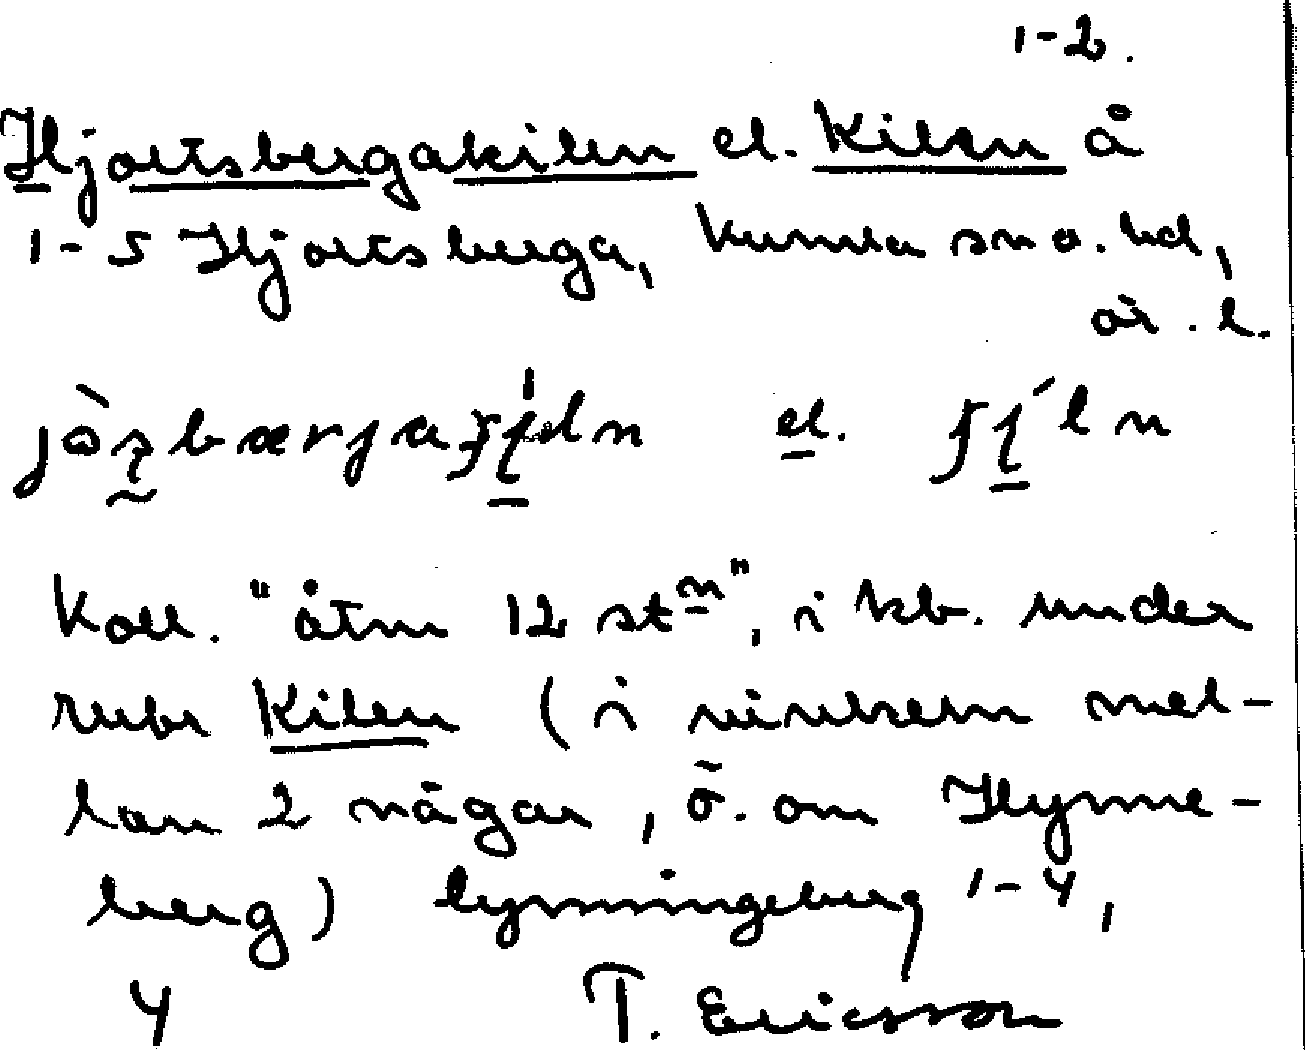 1-2.
Hjortsbergakilen el. Kilen å
1-5 Hjortsberga, Kumla sn o. hd,
ör. l.
el.
Koll. "åtm 12 stn", i kb. under
rubr Kilen (i vinkeln mel-
lan 2 vägar, ö. om Hymme-
berg) hymningeberg 1-4,
4 T. Ericsson